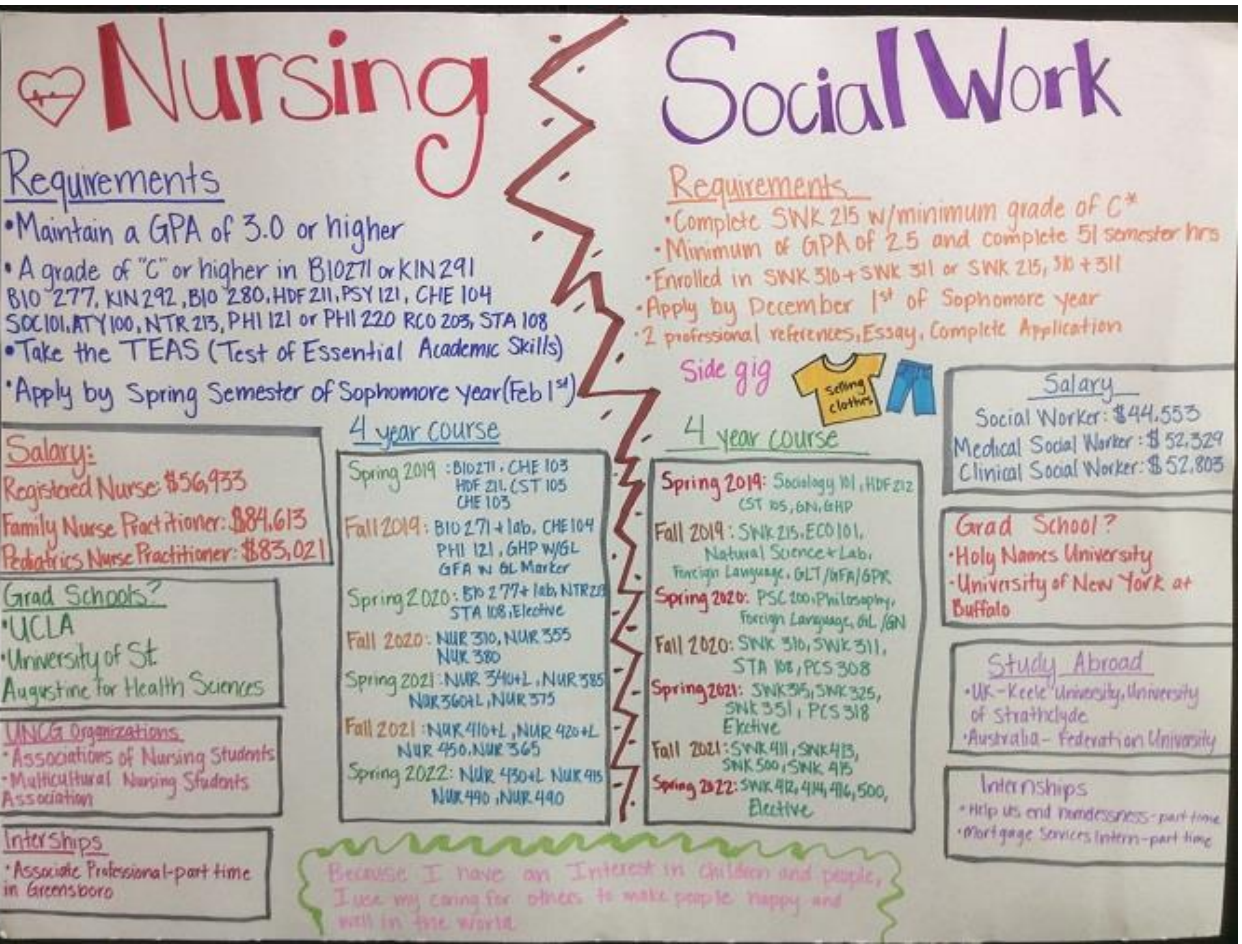 Nursing
Requirements
•Maintain a GPA of 3.0 or higher
•A grade of "C" or higher in BIO271 or KIN291
BIO 277, KIN292, BIO 280, HDF 211, PSY 121, CHE 104
SOC101, ATY100, NTR 213, PHI 121 or PHI 220 RCO 203, STA 108
•Take the TEAS (Test of Essential Academic Skills)
•Apply by Spring Semester of Sophomore year (Feb 1st)
Salary:
Registered Nurse: $56,933
Family Nurse Practitioner: $84,613
Pediatrics Nurse Practitioner: $83,021
Grad Schools?
•UCLA
•University of St.
Augustine for Health Sciences
UNCG Organizations
•Associations of Nursing Students
•Multicultural Nursing Students
Association
Interships
•Associate Professional-part time
in Greensboro
4 year course
Spring 2019: BIO271, CHE 103
HDF 211, CST 105
CHE 103
Fall 2019: BIO 271 + lab, CHE 104
PHI 121, GHP W/GL
GFA W GL Marker
Spring 2020: BIO 277+ lab, NTR 213
STA 108, Elective
Fall 2020: NUR 310, NUR 355
NUR 380
Spring 2021: NUR 340+L, NUR 385
NUR 360+L, NUR 375
Fall 2021: NUR 410+L, NUR 420+L
NUR 450, NUR 365
Spring 2022: NUR 430+L NUR 415
NUR 440, NUR 490
Social Work
Requirements
•Complete SWK 215 w/minimum grade of C*
•Minimum of GPA of 2.5 and complete 51 semester hrs
•Enrolled in SWK 310 + SWK 311 or SWK 215, 310 + 311
•Apply by December 1st of Sophomore year
•2 professional references, Essay, Complete Application
Side gig
Selling
clothes
4 year course
Spring 2019: Sociology 101, HDF 212
CST 105, GN, GHP
Fall 2019: SWK 215, ECO 101,
Natural Science + Lab,
Foreign Language, GLT/GFA/GPR
Spring 2020: PSC 200, Philosophy,
Foreign Language, GL /GN
Fall 2020: SWK 310, SWK 311,
STA 108, PCS 308
Spring 2021: SWK 315, SWK 325,
SWK 351, PCS 318
Elective
Fall 2021: SWK 411, SWK 413,
SWK 500, SWK 415
Spring 2022: SWK 412, 414, 416, 500,
Elective
Salary
Social Worker: $44,553
Medical Social Worker: $52,329
Clinical Social Worker: $52,803
Grad School?
•Holy Names University
•University of New York at
Buffalo
Study Abroad
•UK-Keele University, University
of Strathclyde
•Australia- Federation University
Internships
•Help us end homelessness-part time
•Mortgage Services Intern-part time
Because I have an Interest in children and people,
I use my caring for others to make people happy and
well in the world